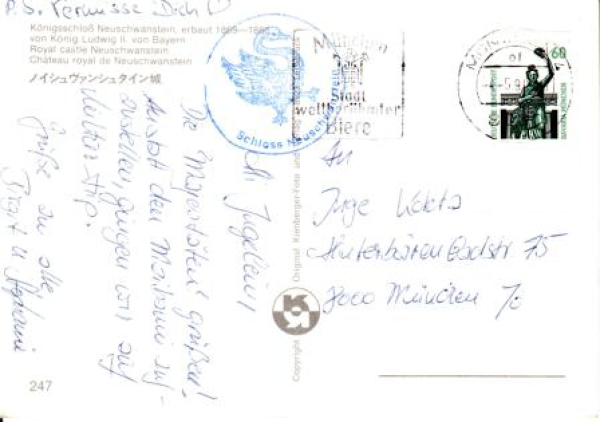 P.S. Vermisse Dich
Königsschloß Neuschwanstein, erbaut 1869–1886
von König Ludwig II. von Bayern
Royal castle Neuschwanstein
Château royal de Neuschwanstein
ノイシュヴァンシュタイン城
Schloss Neuschwanstein
München
Stadt
weltberühmter
Biere
60
Hi Ingelein,
Die Majestäten grüßen!
Anstatt den Maibaum auf-
zustellen, gingen wir auf
Kulturtrip.
Grüße an alle
An
Inge
75
8000 München 70
Copyright
Original Kienberger-Foto und
247